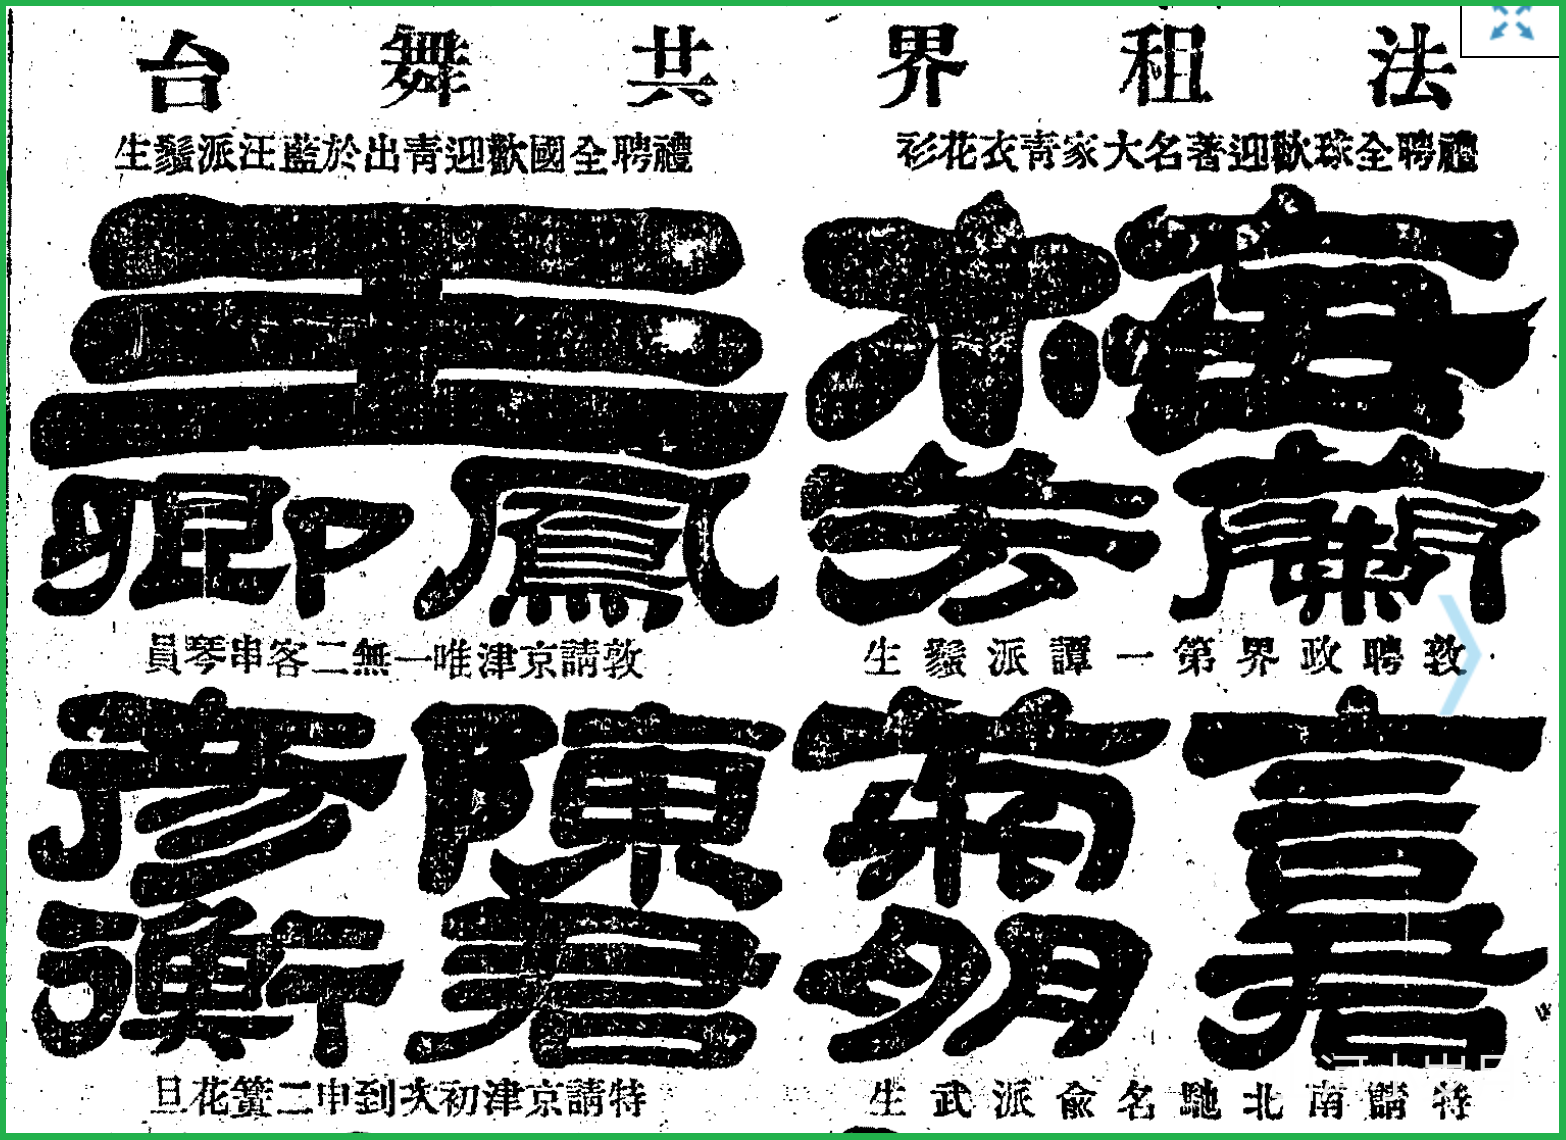 法租界共舞台
禮聘全球歡迎著名大家青衣花衫
梅
蘭芳
禮聘全國歡迎青出於藍汪派鬚生
王
鳳卿
敦聘政界第一譚派鬚生
言菊
君朋
敦請京津唯一無二客串琴員
陳彥
君衡
特請南北馳名俞派武生
特請京津初次到申二簧花旦